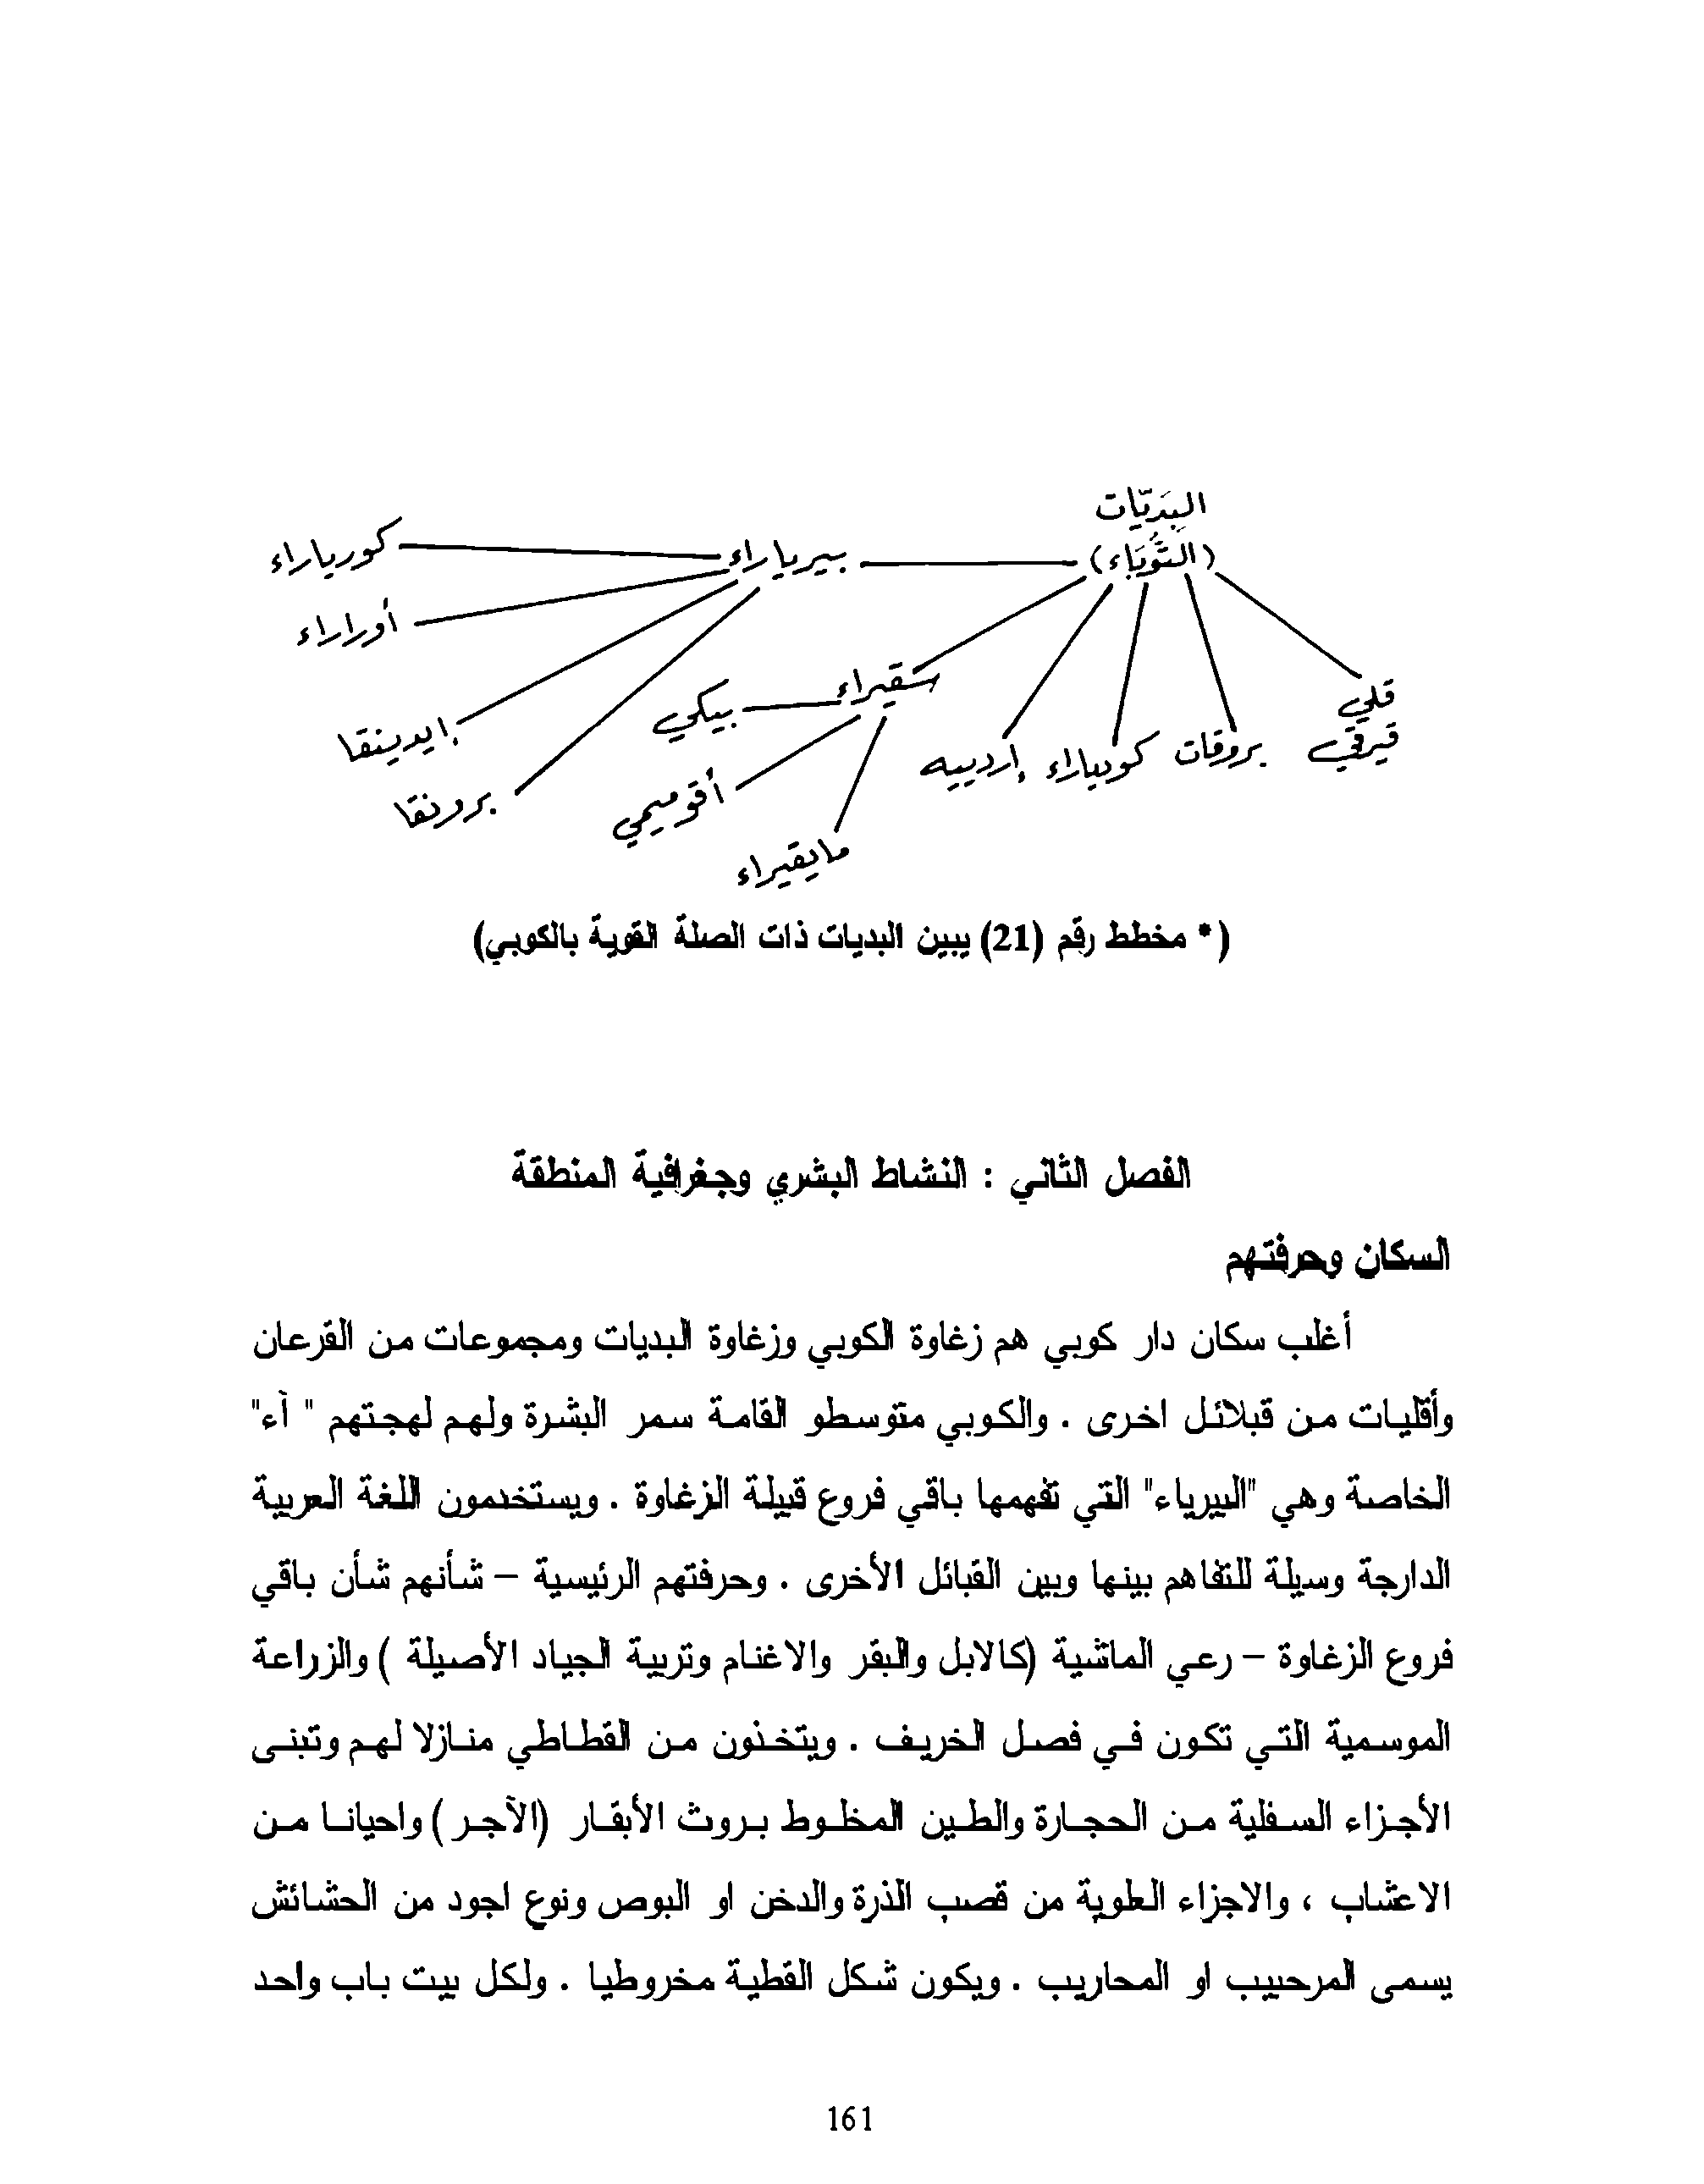 البِدَيّات
(التُّوَبَاء)
بيرياراء
كورياراء
أوراراء
إيدينقا
برونقا
سقيراء
بيكي
أقوميمي
مايقيراء
إردبيه
كوبياراء
بروقات
قلي
قيرقي
( * مخطط رقم (21) يبين البديات ذات الصلة القوية بالكوبي)
الفصل الثاني : النشاط البشري وجغرافية المنطقة
السكان وحرفتهم
أغلب سكان دار كوبي هم زغاوة الكوبي وزغاوة البديات ومجموعات من القرعان
وأقليات من قبلائل اخرى . والكوبي متوسطو القامة سمر البشرة ولهم لهجتهم " آء"
الخاصة وهي "البيرياء" التي تفهمها باقي فروع قبيلة الزغاوة . ويستخدمون اللغة العربية
الدارجة وسيلة للتفاهم بينها وبين القبائل الأخرى . وحرفتهم الرئيسية – شأنهم شأن باقي
فروع الزغاوة – رعي الماشية (كالابل والبقر والاغنام وتربية الجياد الأصيلة ) والزراعة
الموسمية التي تكون في فصل الخريف . ويتخذون من القطاطي منازلا لهم وتبنى
الأجزاء السفلية من الحجارة والطين المخلوط بروث الأبقار (الآجر ) واحيانا من
الاعشاب ، والاجزاء العلوية من قصب الذرة والدخن او البوص ونوع اجود من الحشائش
يسمى المرحبيب او المحاريب . ويكون شكل القطية مخروطيا . ولكل بيت باب واحد
161